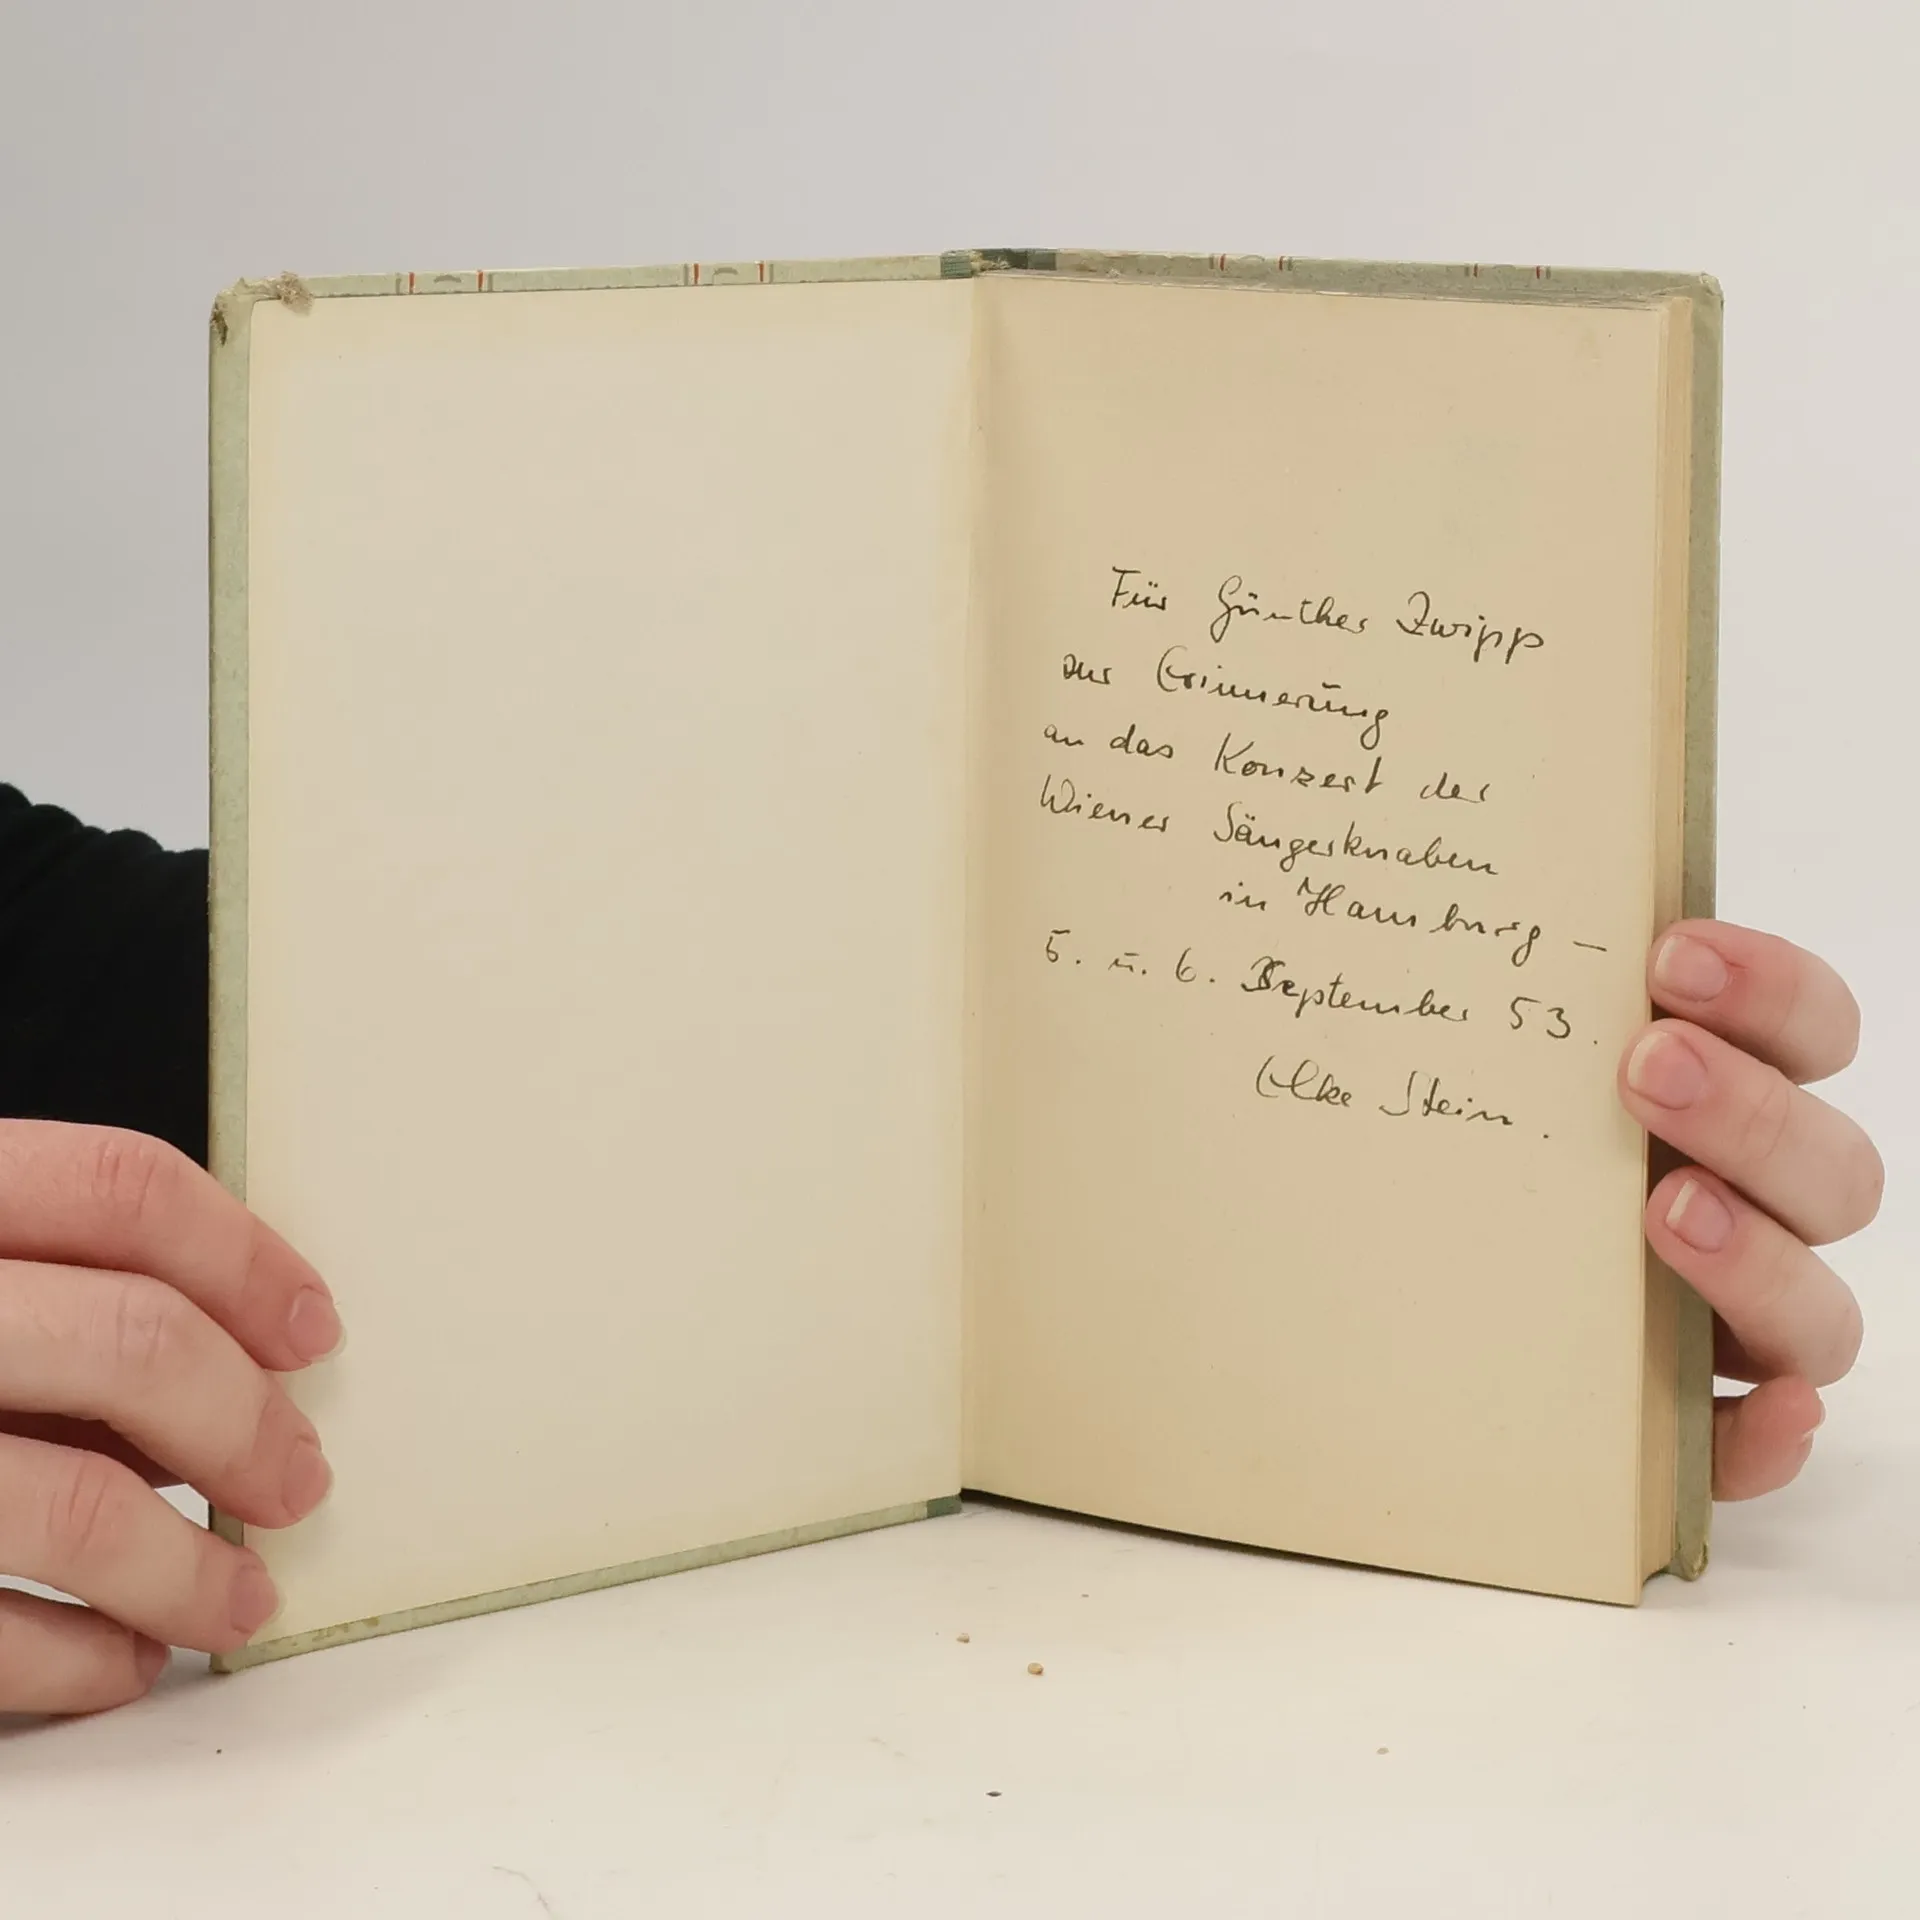 Für Günther Zwipp
zur Erinnerung
an das Konzert der
Wiener Sängerknaben
in Hamburg —
5. u. 6. September 53.
Elke Stein.